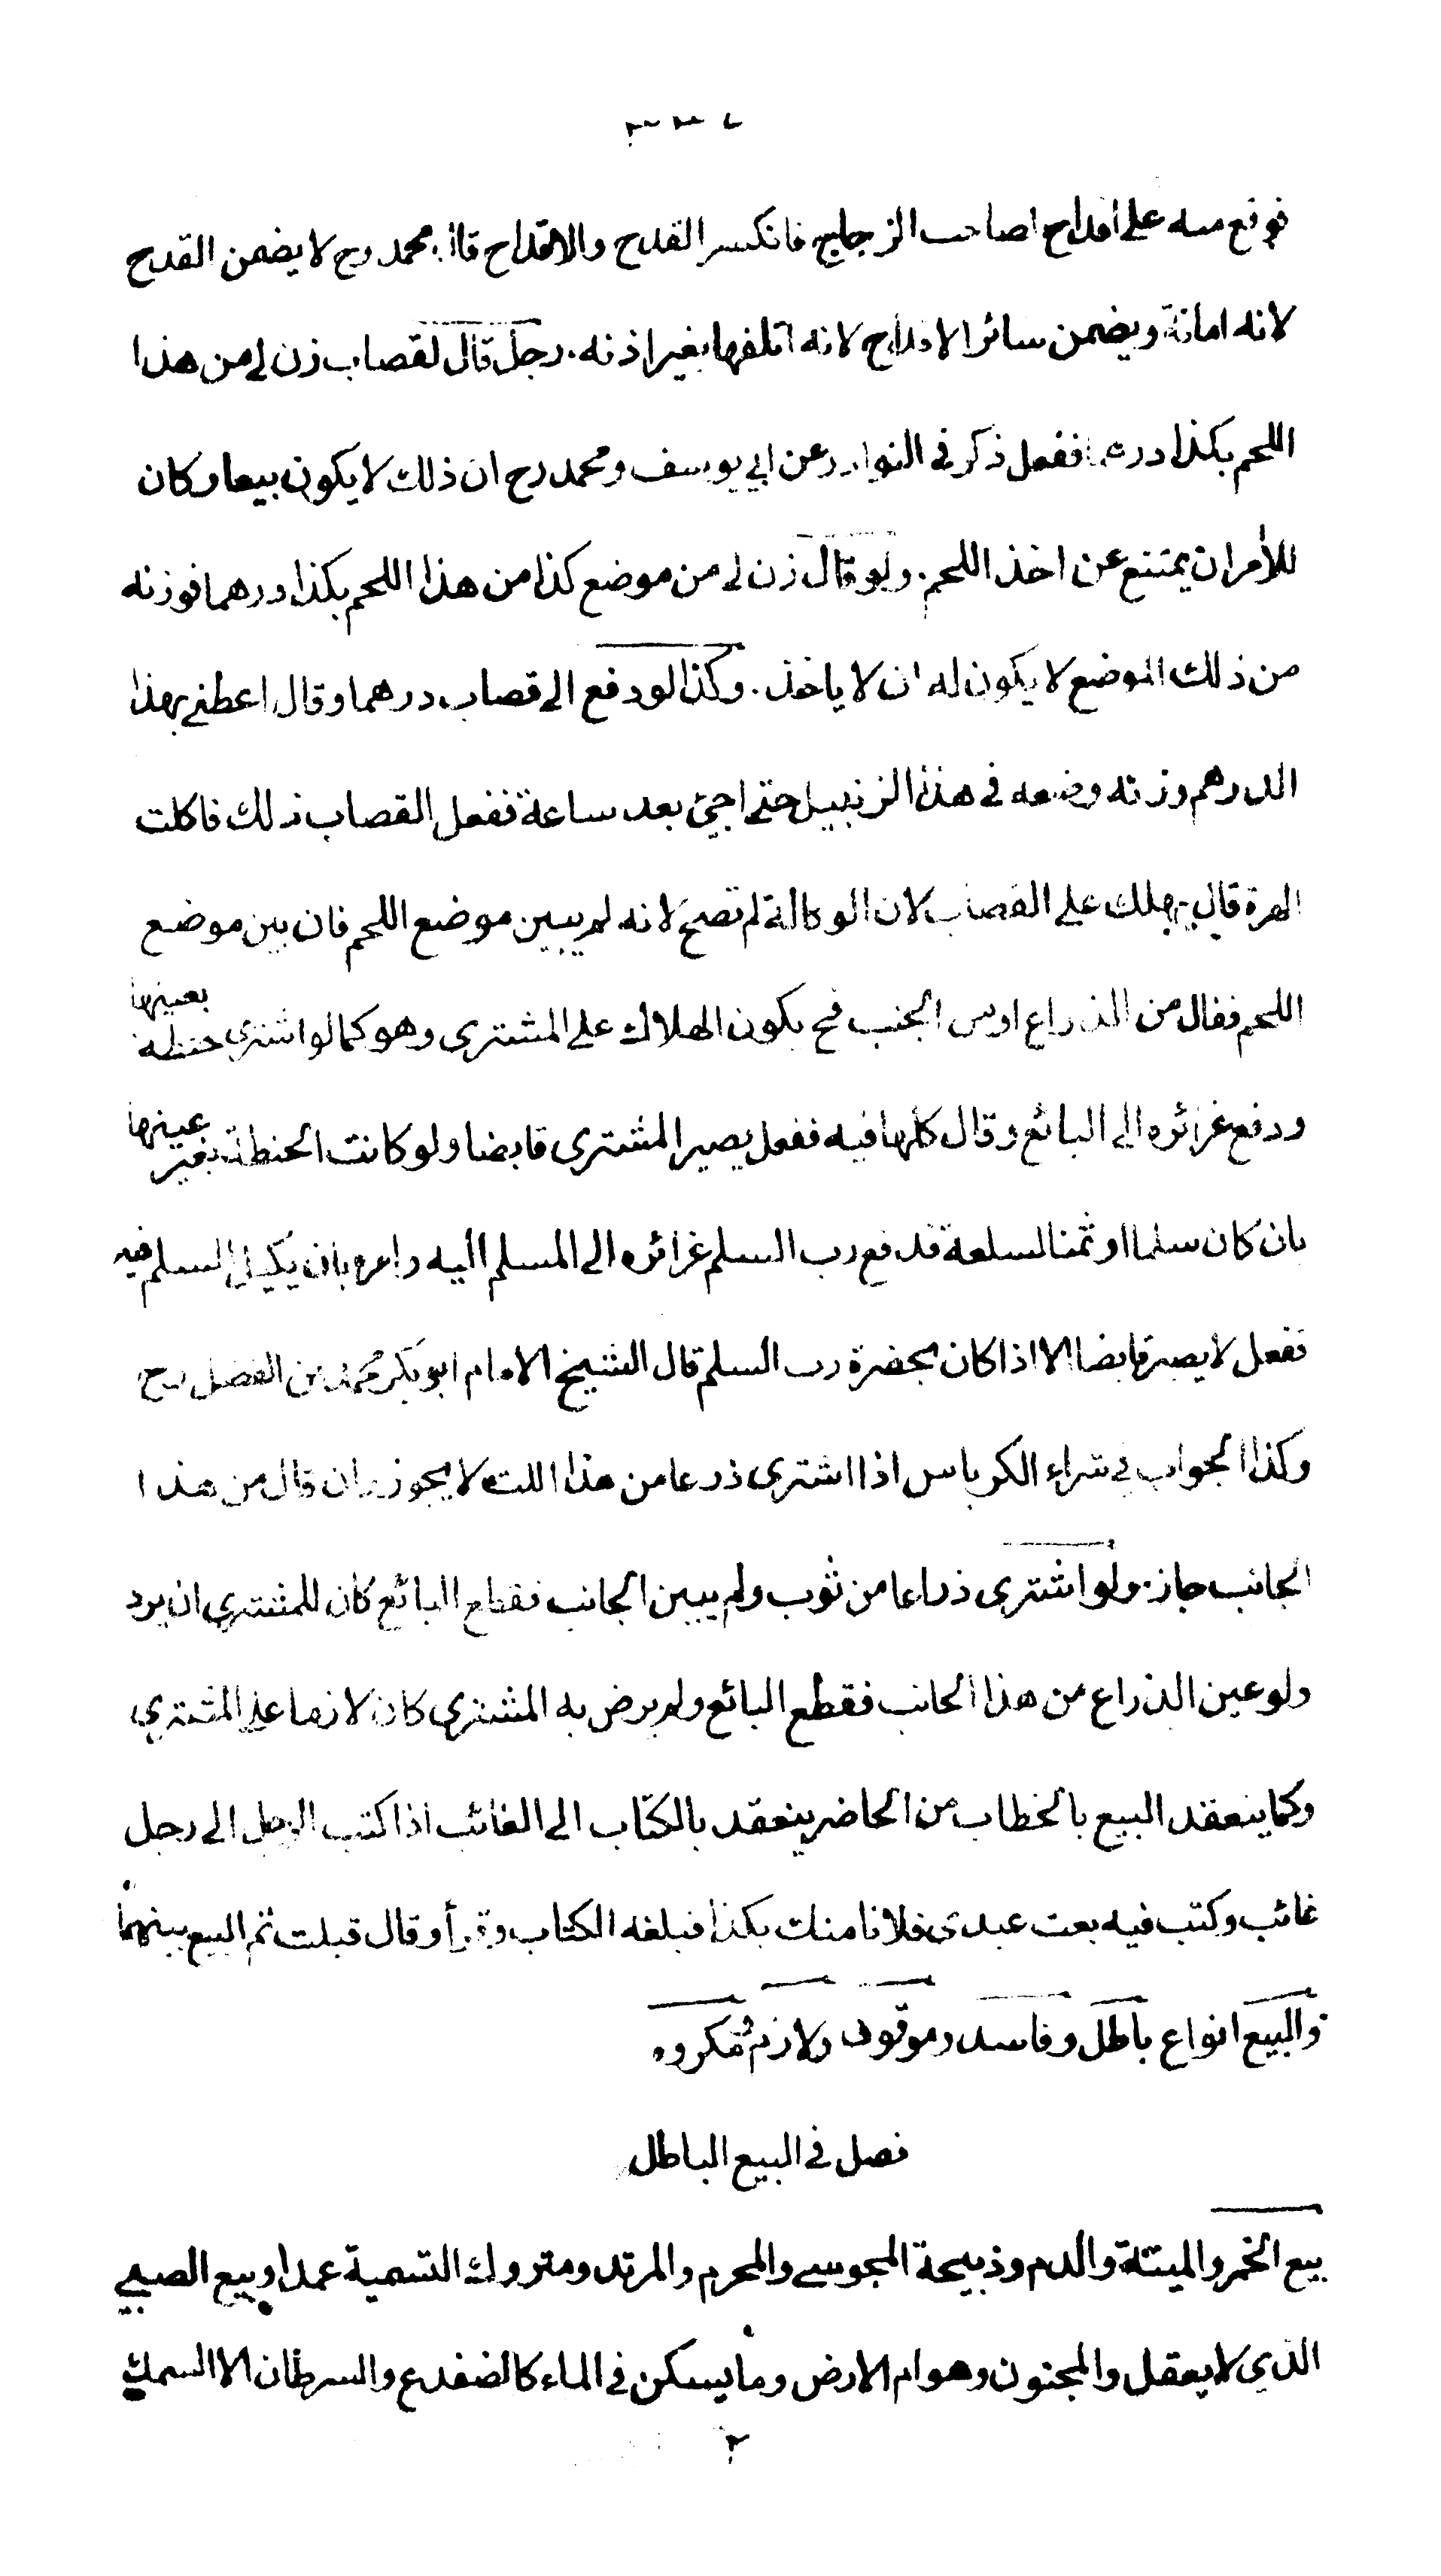 فوقع منه على اقداح لصاحب الزجاج فانكسر القدح والاقداح قال محمد رح لا يضمن القدح
لانه امانة ويضمن سائر الاقداح لانه اتلفها بغير اذنه. رجل قال لقصاب زن لي من هذا
اللحم بكذا درهما ففعل ذكر في النوادر عن ابي يوسف ومحمد رح ان ذلك لا يكون بيعا وكان
للأمر ان يمتنع عن اخذ اللحم. ولو قال زن لي من موضع كذا من هذا اللحم بكذا درهما فوزنه
من ذلك الموضع لا يكون له ان لا ياخذ. وكذا لو دفع الى قصاب درهما وقال اعطني بهذا
الدرهم وزنه وضعه في هذا الزنبيل حتى اجئ بعد ساعة ففعل القصاب ذلك فاكلت
الهرة قال يهلك على القصاب لان الوكالة لم تصح لانه لم يبين موضع اللحم فان بين موضع
اللحم فقال من الذراع اومن الجنب فح يكون الهلاك على المشترى وهو كما لو اشترى حنطة بعينها
ودفع غرائره الى البائع وقال كلها فيه ففعل يصير المشترى قابضا ولو كانت الحنطة بغير عينها
بان كان سلما او ثمنا لسلعة فدفع رب السلم غرائره الى المسلم اليه وامره بان يكيل السلم فيه
ففعل لا يصير قابضا الا اذا كان بحضرة رب السلم قال الشيخ الامام ابو بكر محمد بن الفضل رح
وكذا الجواب في شراء الكرباس اذا اشترى ذرعا من هذا اللت لا يجوز وان قال من هذا
الجانب جاز. ولو اشترى ذراعا من ثوب ولم يبين الجانب فقطع البائع كان للمشتري ان يرد
ولو عين الذراع من هذا الجانب فقطع البائع ولم يرض به المشترى كان لازما على المشتري
وكما ينعقد البيع بالخطاب من الحاضر ينعقد بالكتاب الى الغائب اذا كتب الرجل الى رجل
غائب وكتب فيه بعت عبدى فلانا منك بكذا فبلغه الكتاب وقرأ وقال قبلت تم البيع بينهما
والبيع انواع باطل وفاسد وموقوف ولازم ومكروه
فصل في البيع الباطل
بيع الخمر والميتة والدم وذبيحة المجوسي والمحرم والمرتد ومتروك التسمية عمدا وبيع الصبي
الذي لا يعقل والمجنون وهوام الارض وما يسكن في الماء كالضفدع والسرطان الا السمك
٢